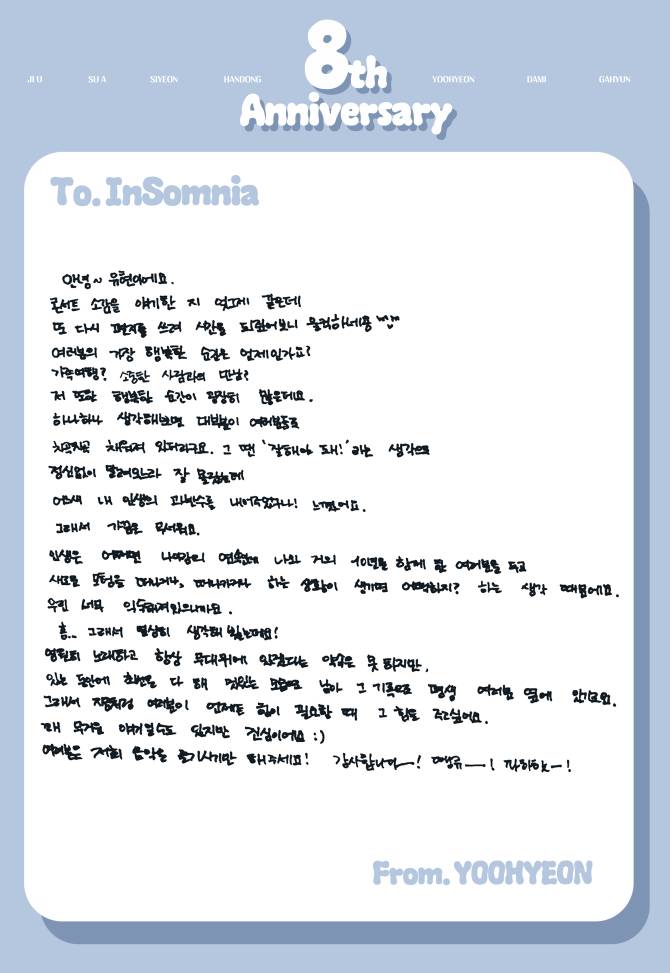 8th
JI U SU A SIYEON HANDONG YOOHYEON DAMI GAHYUN
Anniversary
To. InSomnia
안녕~ 유현이에요.
콘서트 소감을 얘기한 지 엊그제 같은데
또 다시 편지를 쓰려 8년을 되짚어보니 울컥하네용
여러분의 가장 행복한 순간은 언제인가요?
가족여행? 소중한 사람과의 만남?
저 또한 행복한 순간이 굉장히 많은데요.
하나하나 생각해보면 대부분이 여러분들로
차곡차곡 채워져 있더라구요. 그 땐 '잘해야 돼!' 라는 생각으로
정신없이 달려와 잘 몰랐는데
어느새 내 인생의 과반수를 내어주었구나! 느꼈어요.
그래서 가끔은 무서워요.
인생은 어쩌면 나와 거의 함께 한 여러분을 두고
새로운 모험을 떠나거나, 떠나가거나 하는 상황이 생기면 어떡하지? 하는 생각 때문에요.
우린 너무 익숙해져있으니까요.
흠.. 그래서 열심히 생각해 봤는데요!
영원히 노래하고 항상 무대위에 있겠다는 약속은 못 하지만,
있는 동안에 최선을 다 해 멋있는 모습으로 남아 그 기록으로 평생 여러분 옆에 있을게요.
그래서 지금처럼 여러분이 언제든 힘이 필요할 때 그 힘을 주고싶어요.
꽤 무거운 얘기일수도 있지만 진심이에요 :)
여러분은 저희 음악을 즐기시기만 해주세요! 감사합니다ㅡ! 땡큐ㅡ!
From. YOOHYEON